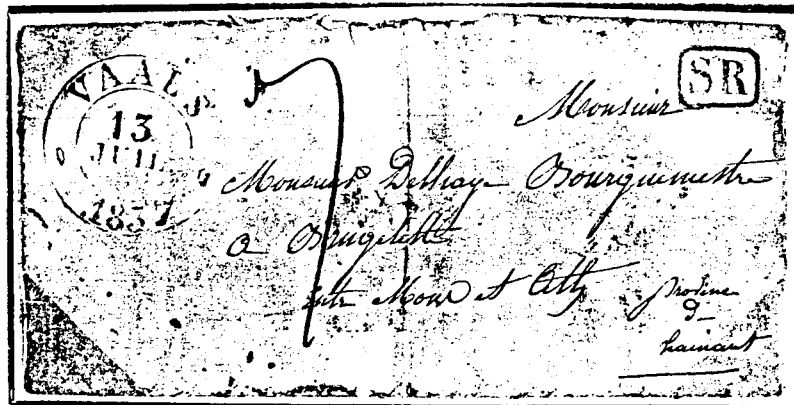 VAALS
13
JUIL
1837
SR
Monsieur
Monsieur Delhaye Bourguemestre
a Brugelette
Entre Mons et Ath
province
d
hainaut